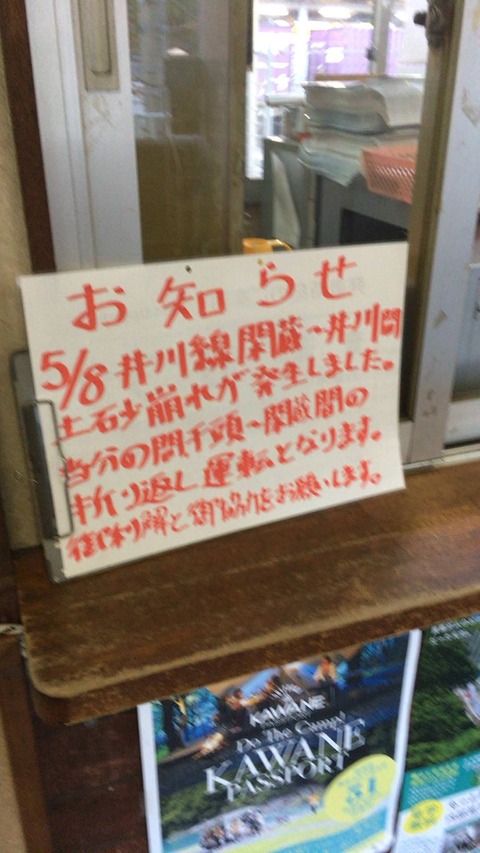 お知らせ
5/8 井川線閑蔵～井川間
土石砂崩れが発生しました。
当分の間千頭～閑蔵間の
折り返し運転となります。
御理解と御協力をお願いします。
KAWANE
Do The Camp!
KAWANE
PASSPORT